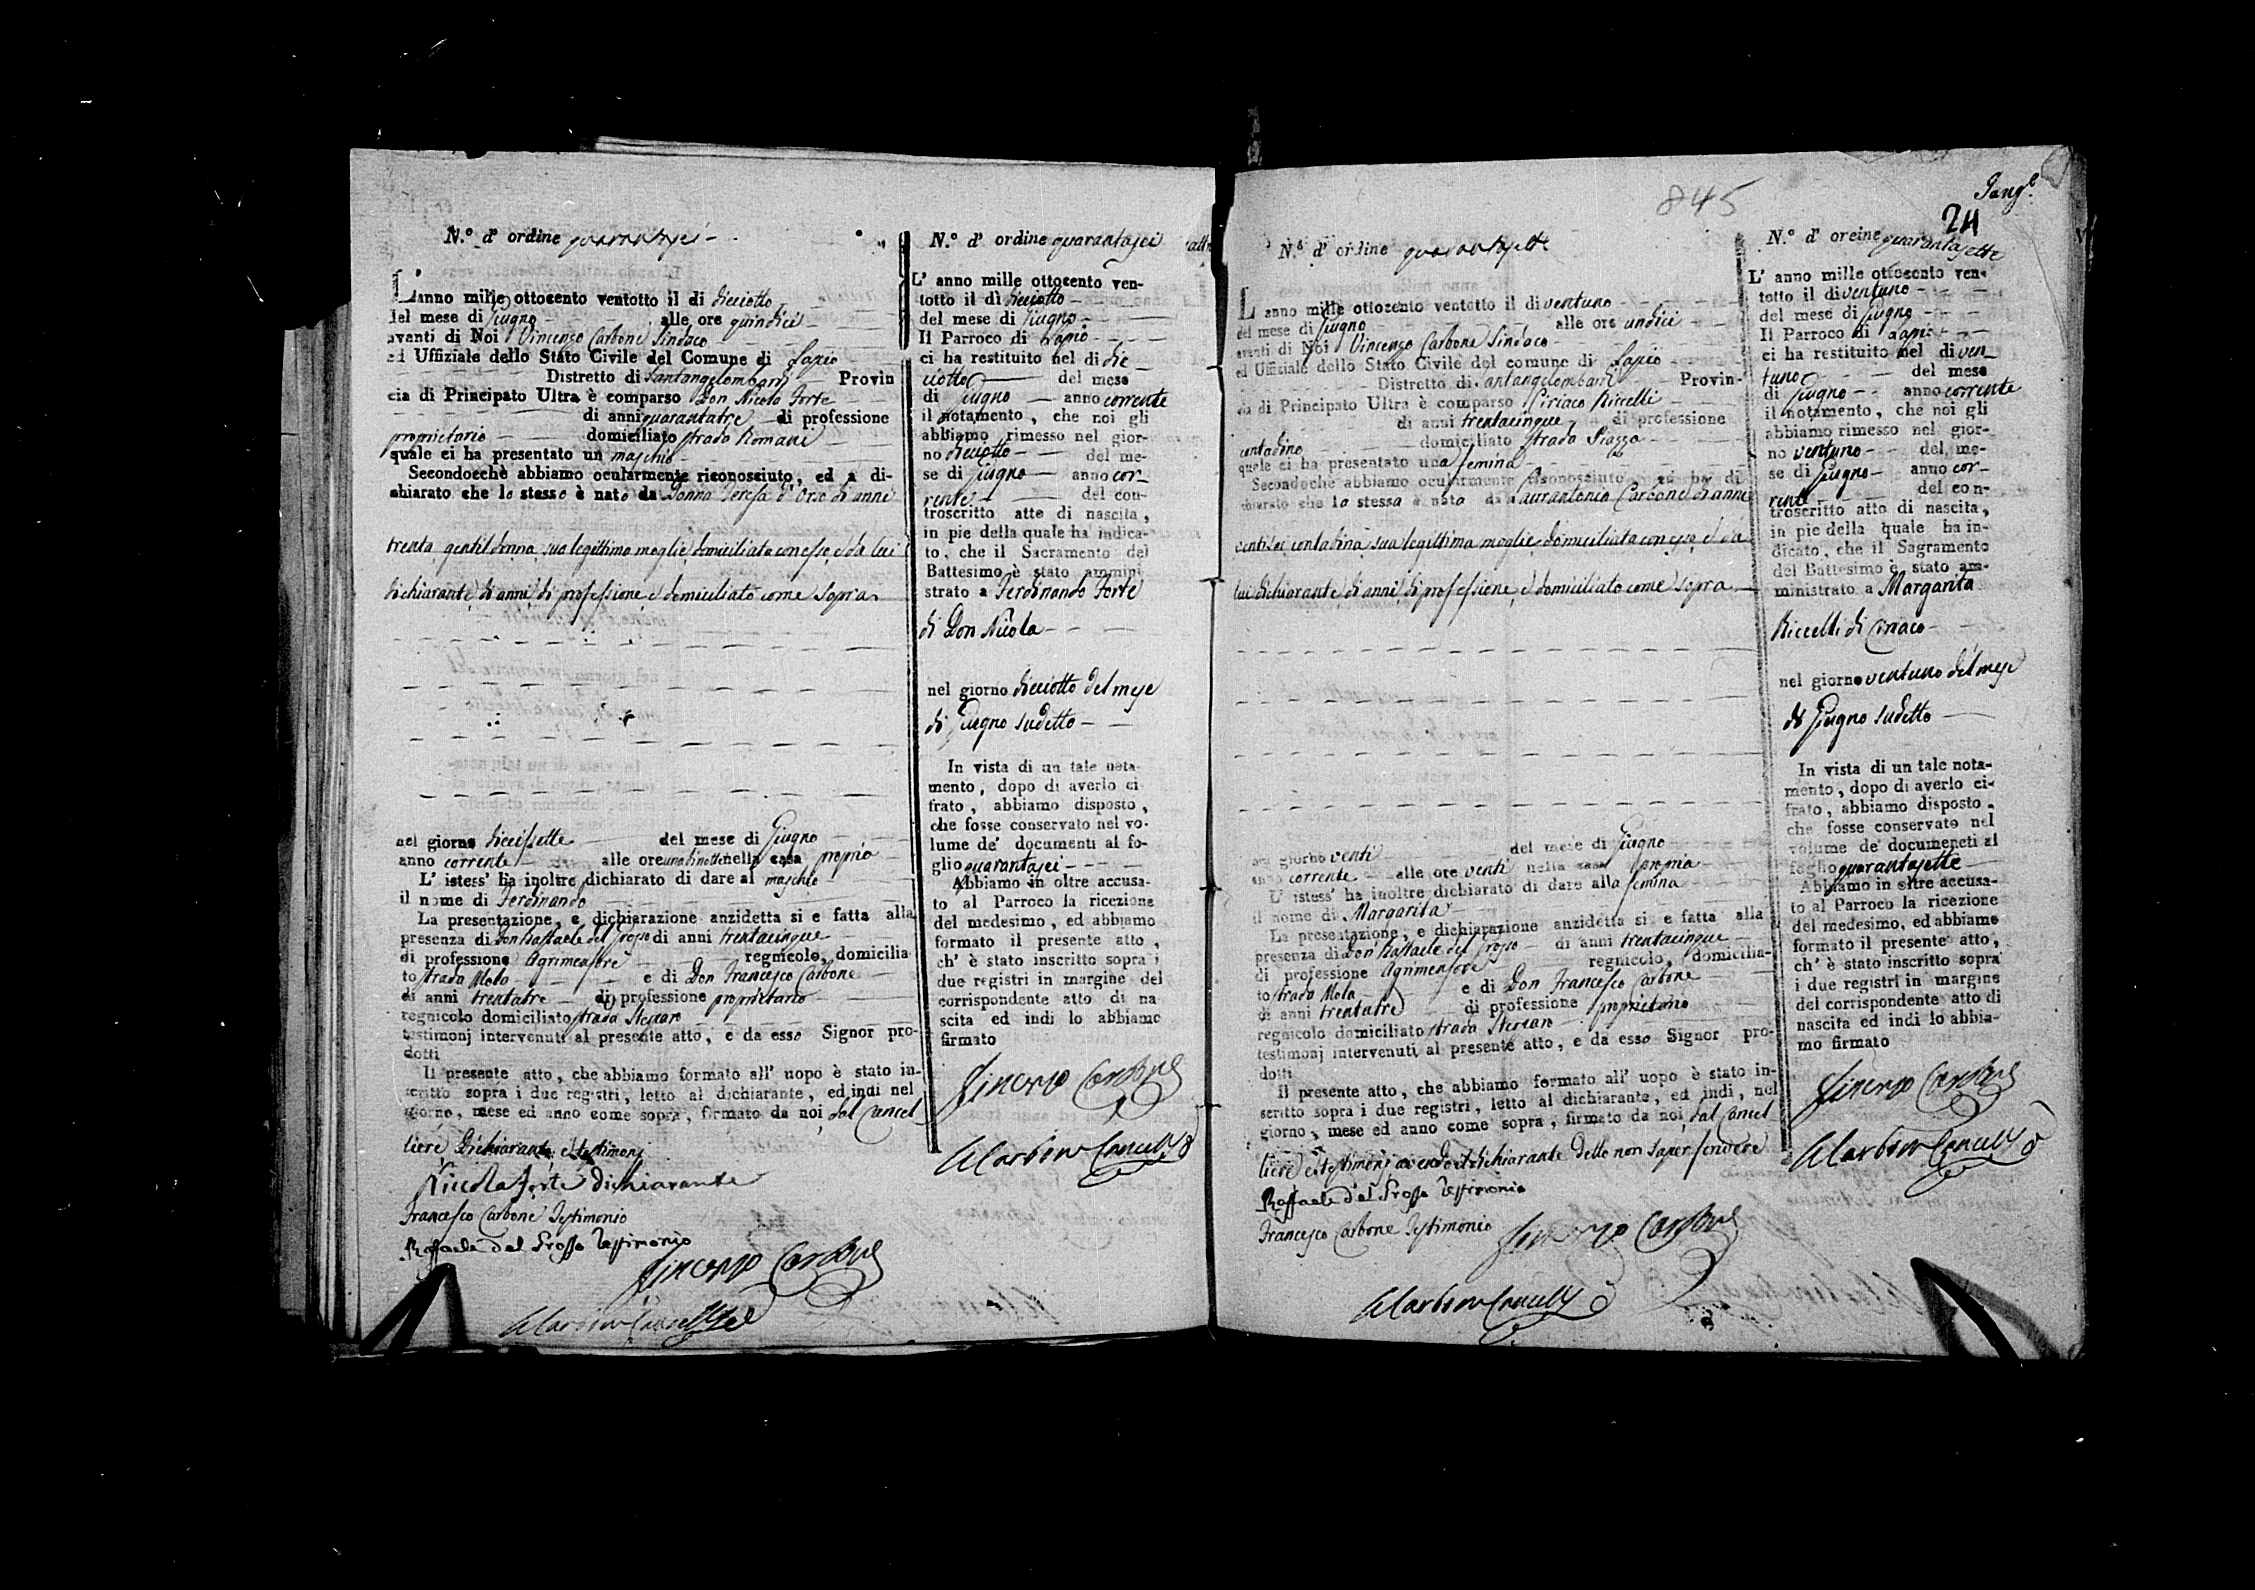 N.º d' ordine quarantasei
L'anno mille ottocento ventotto il di dicciotto
del mese di Giugno alle ore quindici
avanti di Noi Vincenzo Carbone Sindaco
ed Uffiziale dello Stato Civile del Comune di Lapio
Distretto di Santangelombardi Provin
cia di Principato Ultra è comparso Don Nicola Forte
di anni quarantatre di professione
proprietario domiciliato strada Romane
quale ci ha presentato un maschio
Secondocchè abbiamo ocularmente riconosciuto, ed a di-
chiarato che lo stesso è nato da Donna Teresa d'Orso di anni
trenta gentildonna sua legittima moglie domiciliata con esso, e da lui
dichiarante di anni di professione, e domiciliato come sopra
nel giorno diccissette del mese di Giugno
anno corrente alle ore una di notte nella casa propria
L' istess' ha inoltre dichiarato di dare al maschio
il nome di Ferdinando
La presentazione, e dichiarazione anzidetta si e fatta alla
presenza di Don Raffaele del Grosso di anni trentacinque
di professione Agrimensore regnicolo, domicilia
to strada Mola e di Don Francesco Carbone
di anni trentatre di professione proprietario
regnicolo domiciliato strada
testimonj intervenuti al presente atto, e da esso Signor pro-
dotti
Il presente atto, che abbiamo formato all' uopo è stato in-
scritto sopra i due registri, letto al dichiarante, ed indi nel
giorno, mese ed anno come sopra, firmato da noi, dal Cancel
liere Dichiarante, e testimonj
Niccola Forte dichiarante
Francesco Carbone Testimonio
Raffaele del Grosso Testimonio
Vincenzo Carbone
N.º d' ordine quarantasei
L' anno mille ottocento ven-
totto il dì dicciotto
del mese di Giugno
Il Parroco di Lapio
ci ha restituito nel di dic
ciotto del mese
di Giugno anno corrente
il notamento, che noi gli
abbiamo rimesso nel gior-
no dicciotto del me-
se di Giugno anno cor-
rente del con-
troscritto atto di nascita,
in pie della quale ha indica-
to, che il Sacramento del
Battesimo è stato ammini
strato a Ferdinando Forte
di Don Nicola
nel giorno dicciotto del mese
di Giugno sudetto
In vista di un tale nota-
mento, dopo di averlo ci
frato, abbiamo disposto,
che fosse conservato nel vo-
lume de' documenti al fo-
glio quarantasei
Abbiamo in oltre accusa-
to al Parroco la ricezione
del medesimo, ed abbiamo
formato il presente atto,
ch' è stato inscritto sopra i
due registri in margine del
corrispondente atto di na
scita ed indi lo abbiamo
firmato
Vincenzo Carbone
845
24
N.º d' ordine quarantasette
L' anno mille ottocento ventotto il di ventuno
del mese di Giugno alle ore undici
avanti di Noi Vincenzo Carbone Sindaco
ed Uffiziale dello Stato Civile del comune di Lapio
Distretto di Santangelombardi Provin-
cia di Principato Ultra è comparso Ciriaco Riccelli
di anni trentacinque di professione
contadino domiciliato strada Piazza
quale ci ha presentato una femina
Secondochè abbiamo ocularmente riconosciuto ed ha di
chiarato che la stessa è nata da Laurantonia Carbone di anni
ventisei contadina sua legittima moglie domiciliata con esso, e da
lui dichiarante di anni, di professione, e domiciliato come sopra
nel giorno venti del mese di Giugno
anno corrente alle ore venti nella casa propria
L' istess' ha inoltre dichiarato di dare alla femina
il nome di Margarita
La presentazione, e dichiarazione anzidetta si e fatta alla
presenza di Don Raffaele del Grosso di anni trentacinque
di professione Agrimensore regnicolo, domicilia-
to strada Mola e di Don Francesco Carbone
di anni trentatre di professione proprietario
regnicolo domiciliato strada
testimonj intervenuti al presente atto, e da esso Signor pro-
dotti
Il presente atto, che abbiamo formato all' uopo è stato in-
scritto sopra i due registri, letto al dichiarante, ed indi, nel
giorno, mese ed anno come sopra, firmato da noi, dal Cancel
liere e testimonj avendo il dichiarante detto non saper scrivere
Raffaele del Grosso Testimonio
Francesco Carbone Testimonio
Vincenzo Carbone
N.º d' oreine quarantasette
L' anno mille ottocento ven-
totto il di ventuno
del mese di Giugno
Il Parroco di Lapio
ci ha restituito nel di ven_
tuno del mese
di Giugno anno corrente
il notamento, che noi gli
abbiamo rimesso nel gior-
no ventuno del me-
se di Giugno anno cor-
rente del con-
troscritto atto di nascita,
in pie della quale ha in-
dicato, che il Sagramento
del Battesimo è stato am-
ministrato a Margarita
Riccelli di Ciriaco
nel giorno ventuno del mese
di Giugno sudetto
In vista di un tale nota-
mento, dopo di averlo ci-
frato, abbiamo disposto,
che fosse conservato nel
volume de' documeneti al
foglio quarantasette
Abbiamo in oltre accusa-
to al Parroco la ricezione
del medesimo, ed abbiamo
formato il presente atto,
ch' è stato inscritto sopra
i due registri in margine
del corrispondente atto di
nascita ed indi lo abbia-
mo firmato
Vincenzo Carbone